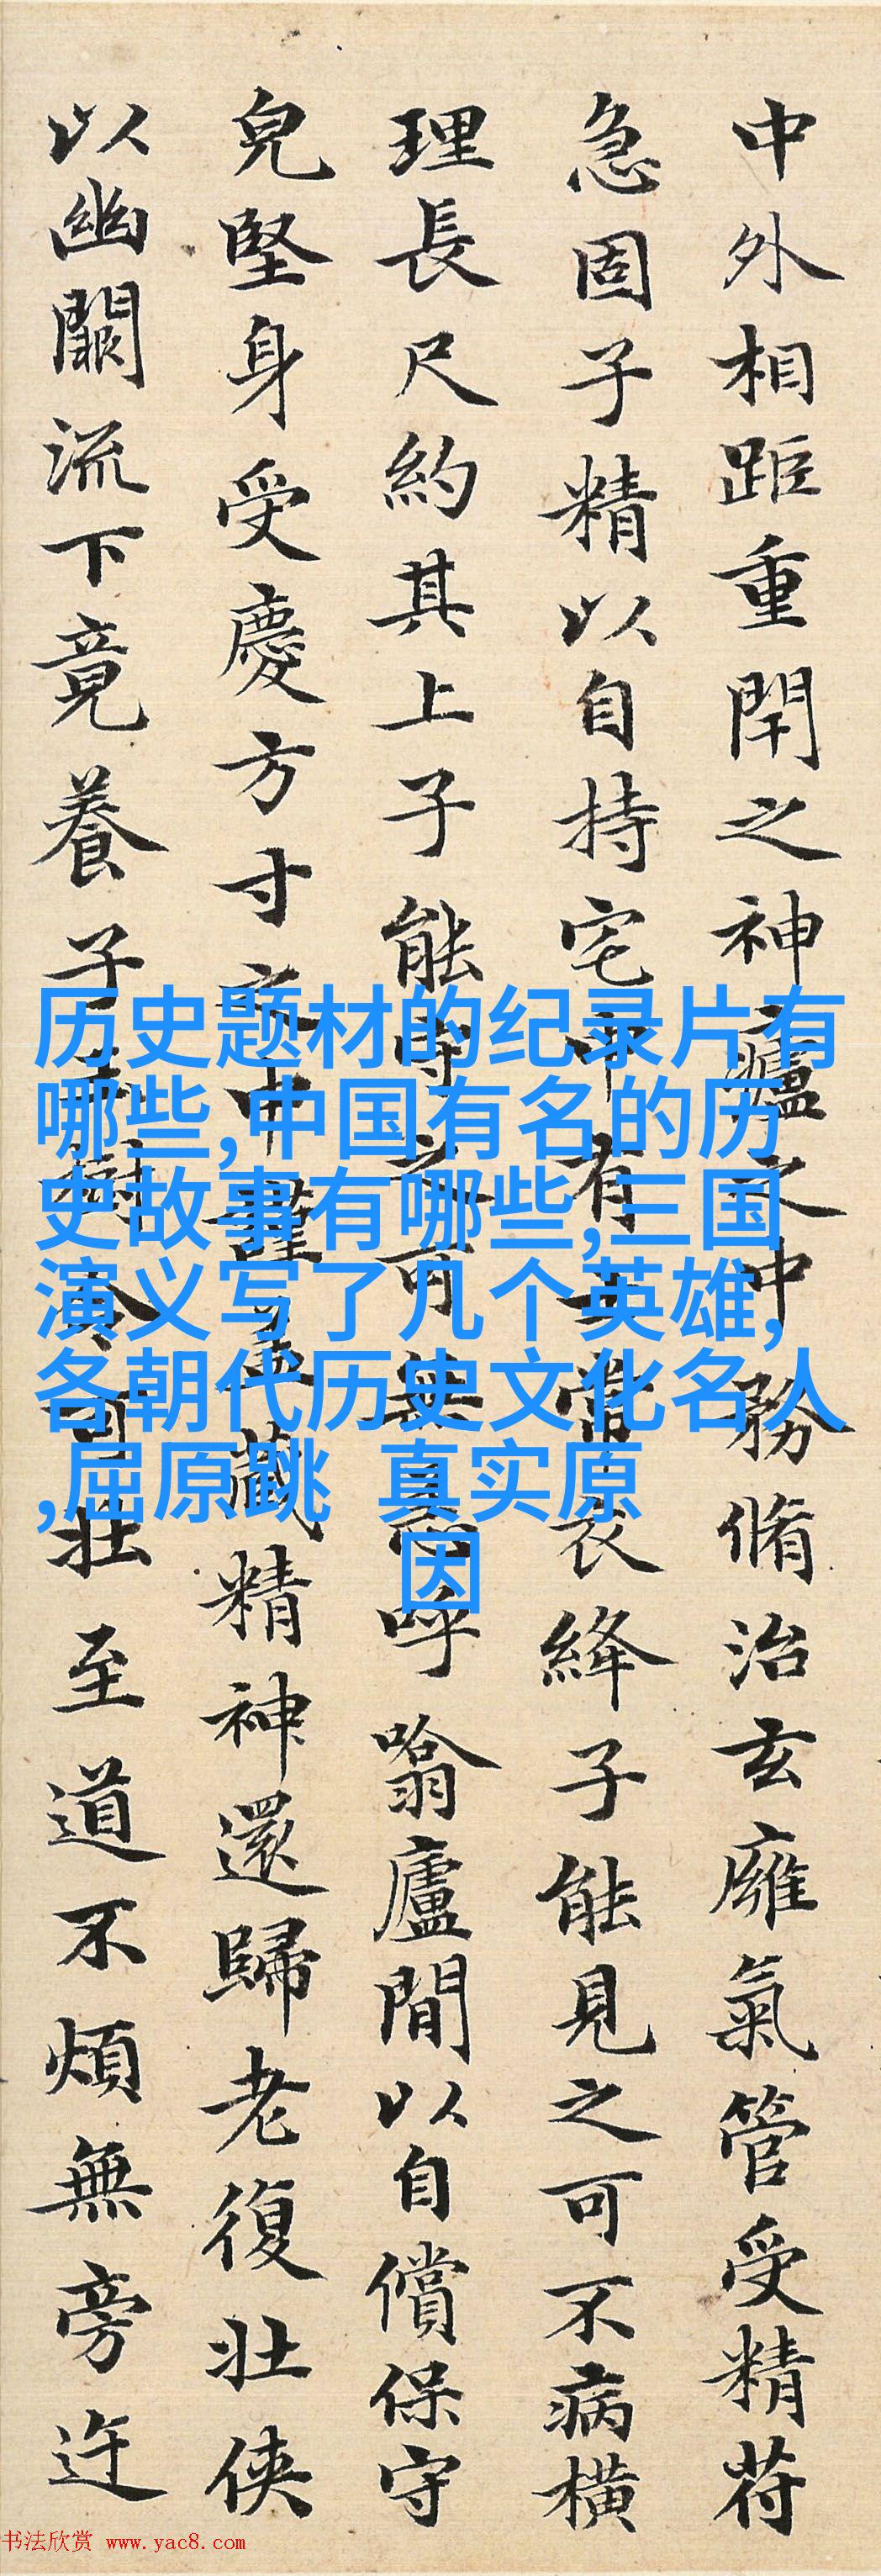 中外相距重閇之神廬之中務脩治玄廱氣管受精符
急固子精以自持宅中有士常衣絳子能見之可不病橫
理長尺約其上子能守之可無恙呼噏廬間以自償保守
皃堅身受慶方寸之中謹蓋藏精神還歸老復壯俠
以幽闕流下竟養子玉樹令可壯至道不煩無旁迕
历史题材的纪录片有
哪些,中国有名的历
史故事有哪些,三国
演义写了几个英雄,
各朝代历史文化名人
,屈原跳 真实原
因
书法欣赏 www.yac8.com